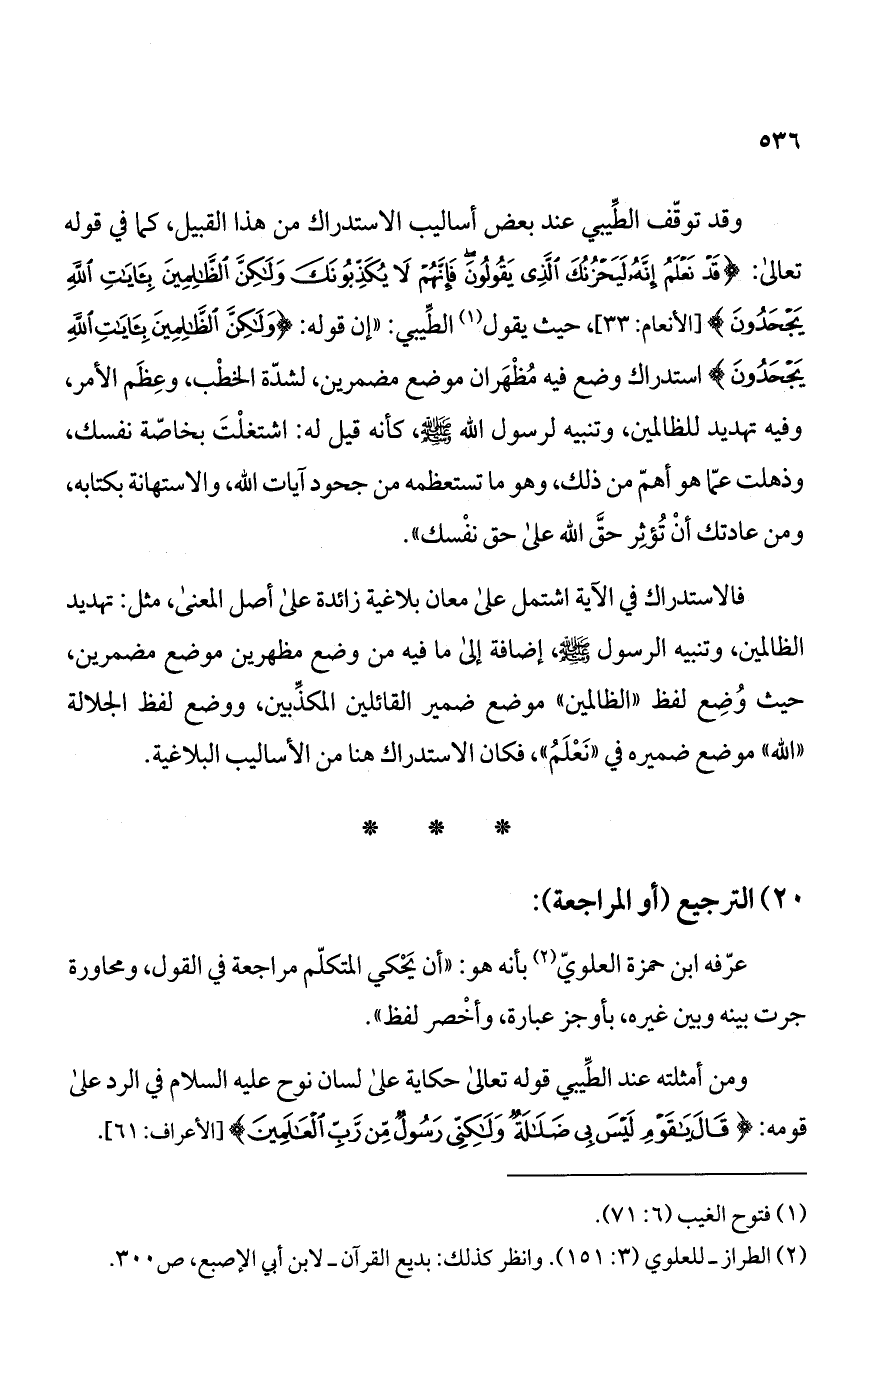 ٥٣٦
وقد توقّف الطِّيبي عند بعض أساليب الاستدراك من هذا القبيل، كما في قوله
تعالىٰ: ﴿قَدْ نَعْلَمُ إِنَّهُۥ لَيَحْزُنُكَ ٱلَّذِى يَقُولُونَۖ فَإِنَّهُمْ لَا يُكَذِّبُونَكَ وَلَٰكِنَّ ٱلظَّٰلِمِينَ بِـَٔايَٰتِ ٱللَّهِ
يَجْحَدُونَ﴾ [الأنعام: ٣٣]، حيث يقول(١) الطِّيبي: «إن قوله: ﴿وَلَٰكِنَّ ٱلظَّٰلِمِينَ بِـَٔايَٰتِ ٱللَّهِ
يَجْحَدُونَ﴾ استدراك وضع فيه مُظْهَران موضع مضمرين، لشدّة الخطْب، وعِظَم الأمر،
وفيه تهديد للظالمين، وتنبيه لرسول الله ﷺ، كأنه قيل له: اشتغلْتَ بخاصّة نفسك،
وذهلت عمّا هو أهمّ من ذلك، وهو ما تستعظمه من جحود آيات الله، والاستهانة بكتابه،
ومن عادتك أنْ تُؤثِر حقَّ الله علىٰ حق نفْسك».
فالاستدراك في الآية اشتمل علىٰ معان بلاغية زائدة علىٰ أصل المعنىٰ، مثل: تهديد
الظالمين، وتنبيه الرسول ﷺ، إضافة إلىٰ ما فيه من وضع مظهرين موضع مضمرين،
حيث وُضِع لفظ «الظالمين» موضع ضمير القائلين المكذِّبين، ووضع لفظ الجلالة
«الله» موضع ضميره في «نَعْلَمُ»، فكان الاستدراك هنا من الأساليب البلاغية.
* * *
٢٠) الترجيع (أو المراجعة):
عرّفه ابن حمزة العلويّ(٢) بأنه هو: «أن يَحْكي المتكلّم مراجعة في القول، ومحاورة
جرت بينه وبين غيره، بأوجز عبارة، وأخْصر لفظ».
ومن أمثلته عند الطِّيبي قوله تعالىٰ حكاية علىٰ لسان نوح عليه السلام في الرد علىٰ
قومه: ﴿قَالَ يَٰقَوْمِ لَيْسَ بِى ضَلَٰلَةٌ وَلَٰكِنِّى رَسُولٌ مِّن رَّبِّ ٱلْعَٰلَمِينَ﴾ [الأعراف: ٦١].
(١) فتوح الغيب (٦: ٧١).
(٢) الطراز ـ للعلوي (٣: ١٥١). وانظر كذلك: بديع القرآن ـ لابن أبي الإصبع، ص٣٠٠.